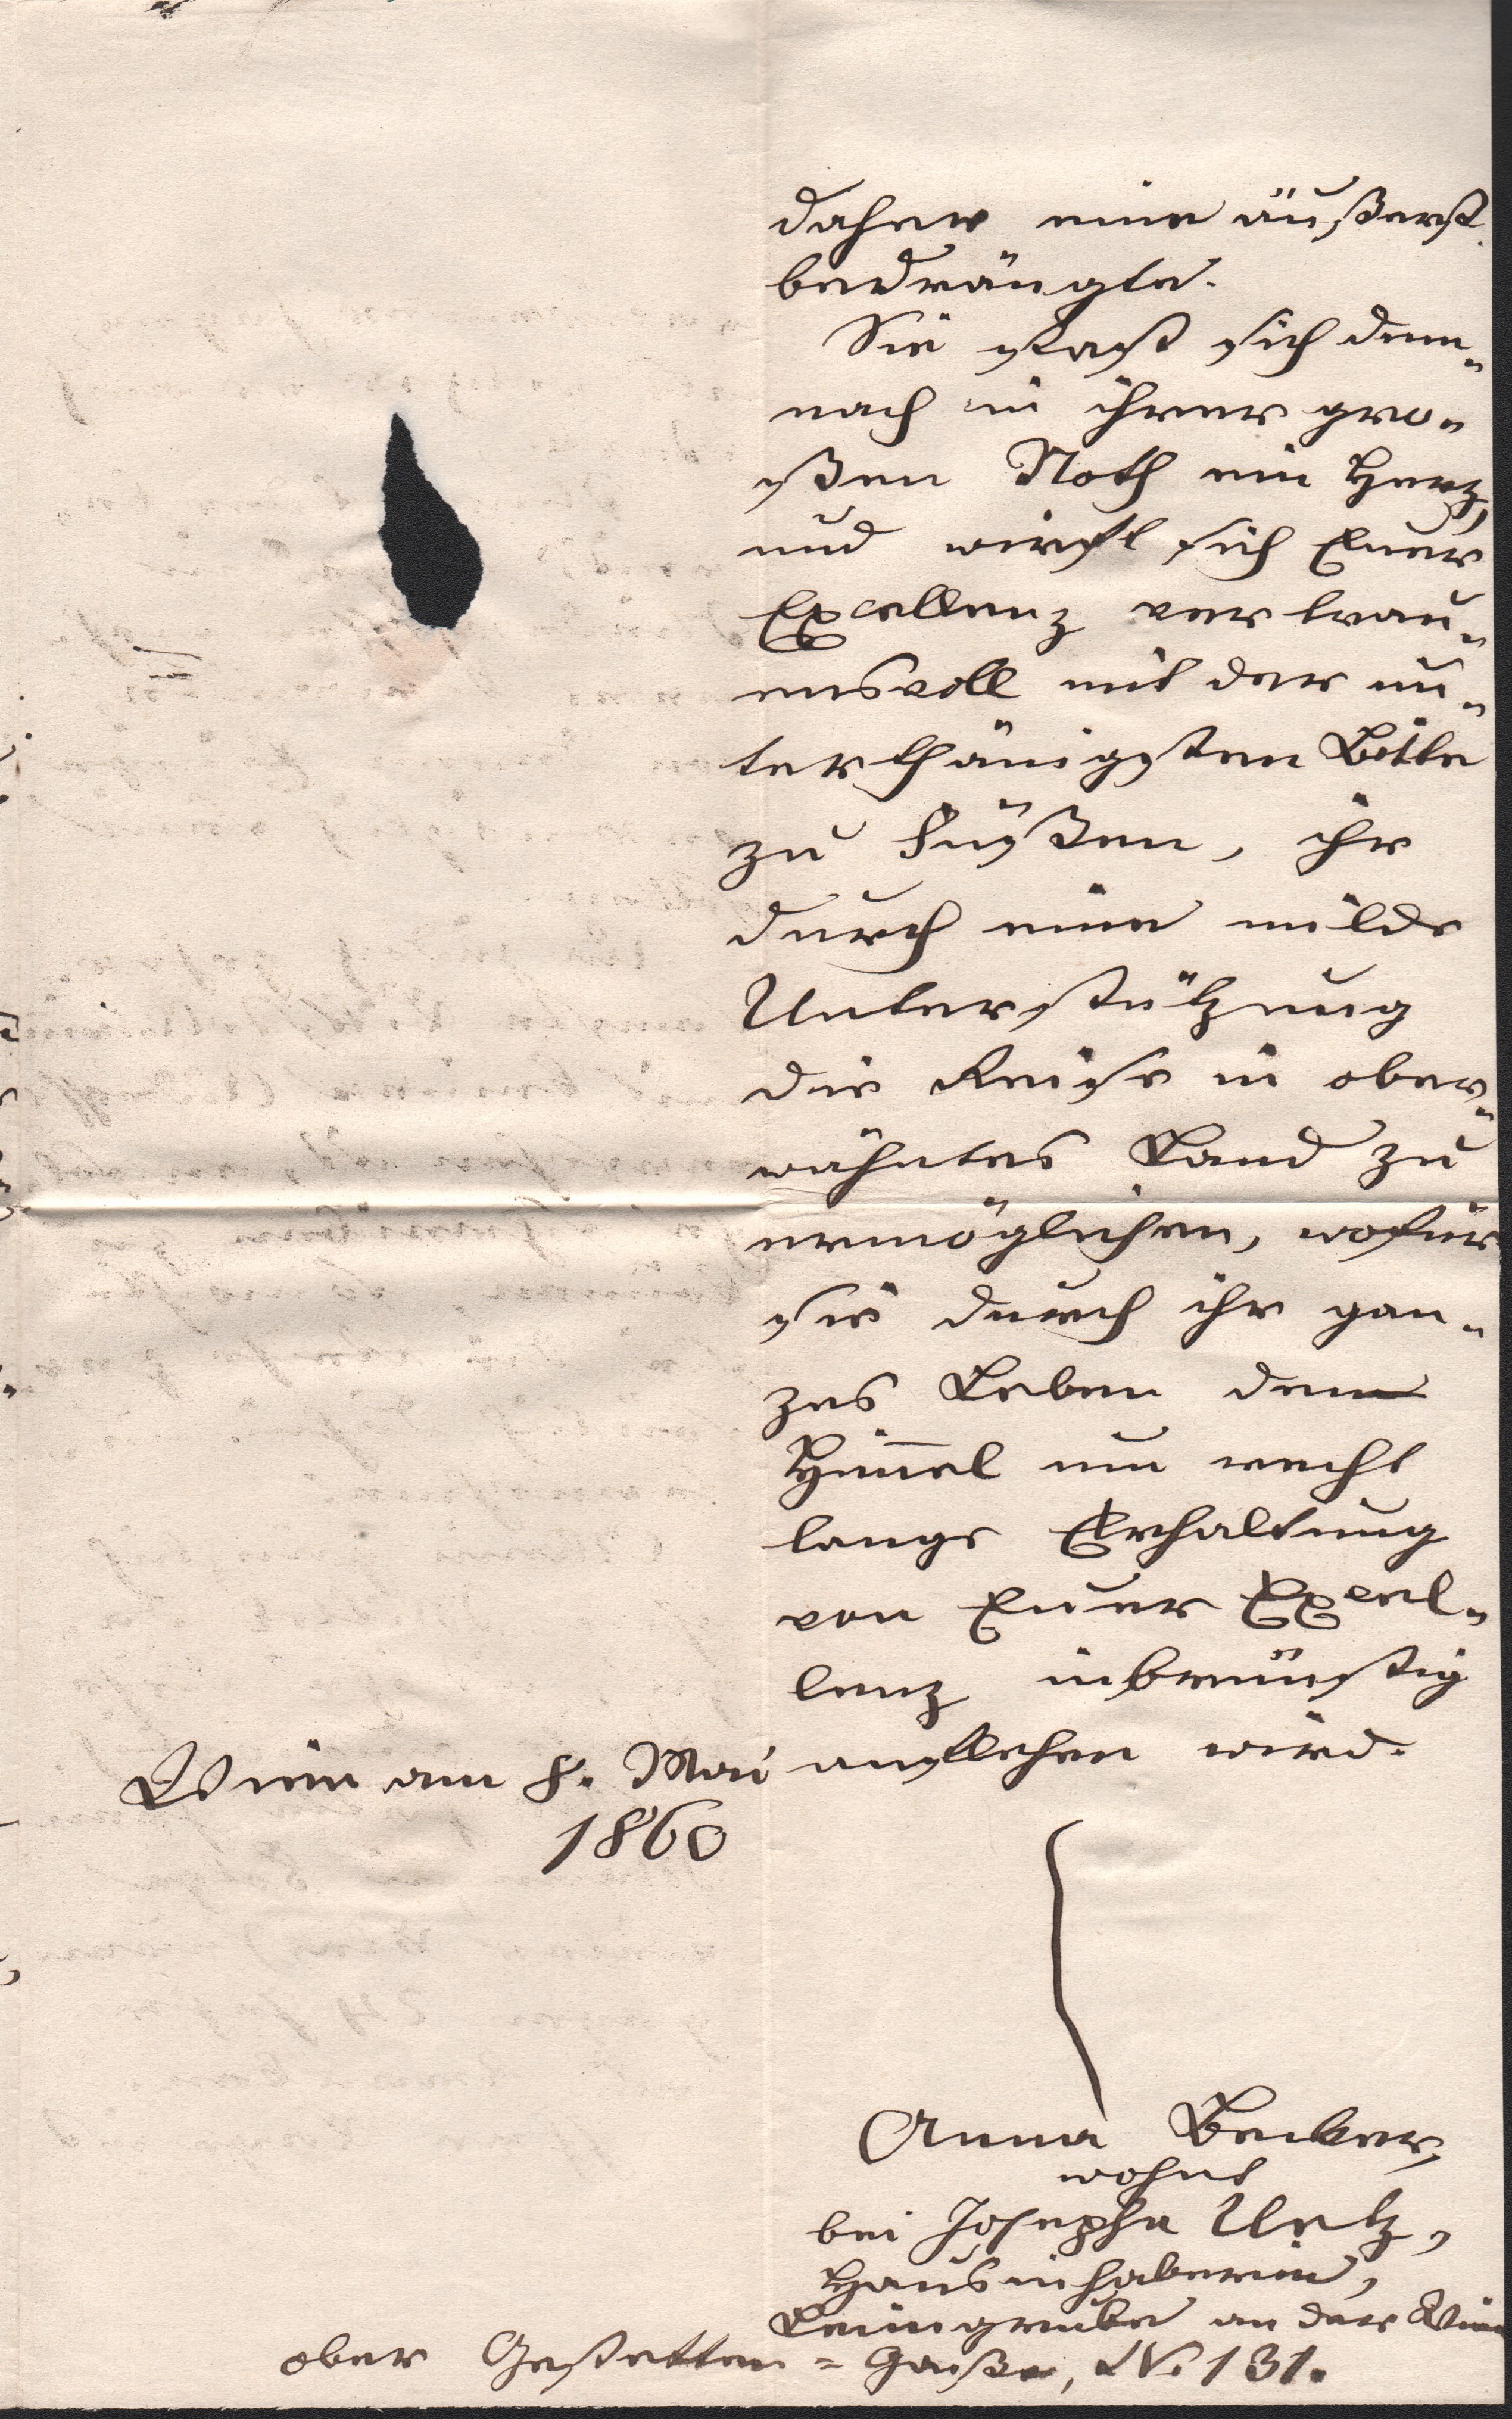 daher eine äußerst
bedrängte.
Sie faßt sich dem-
nach in ihrer gro-
ßen Noth ein Herz,
und wirft sich Euer
Excellenz vertrau-
ensvoll mit der un-
terthänigsten Bitte
zu Füßen, ihr
durch eine milde
Unterstützung
die Reise in ober-
wähntes Land zu
ermöglichen, wofür
sie durch ihr gan-
zes Leben den
Him̅el um recht
lange Erhaltung
von Euer Excel-
lenz inbrünstig
anflehen wird.
Wien am 8. Mai
1860
Anna Becker,
wohnt
bei Josepha Uetz,
Hausinhaberin,
Leimgrube an der Wien
ober Gestetten-Gaße, No 131.